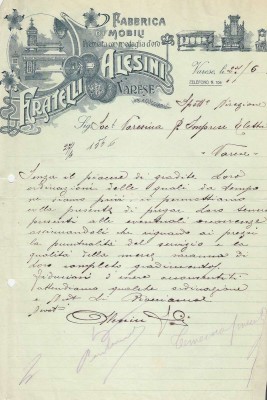 FABBRICA
MOBILI
Premiata con medaglia d'oro
FRATELLI ALESINI
VARESE
Varese, li 22/6
TELEFONO N.
Spett. Direzione
Sig. Soc. Varesina p. Imprese Elettr
Varese
Senza il piacere di gradite Loro
ordinazioni delle quali da tempo
ne siamo privi, ci permettiamo
colla presente di pregar Loro tenerci
presenti alle eventuali occorrenze
assicurandoli che riguardo ai prezzi
la puntualità del servizio e la
qualità della merce, saranno di
Loro completo gradimento.
Fiduciosi d'essere accontentati
attendiamo qualche ordinazione
e
Alesini